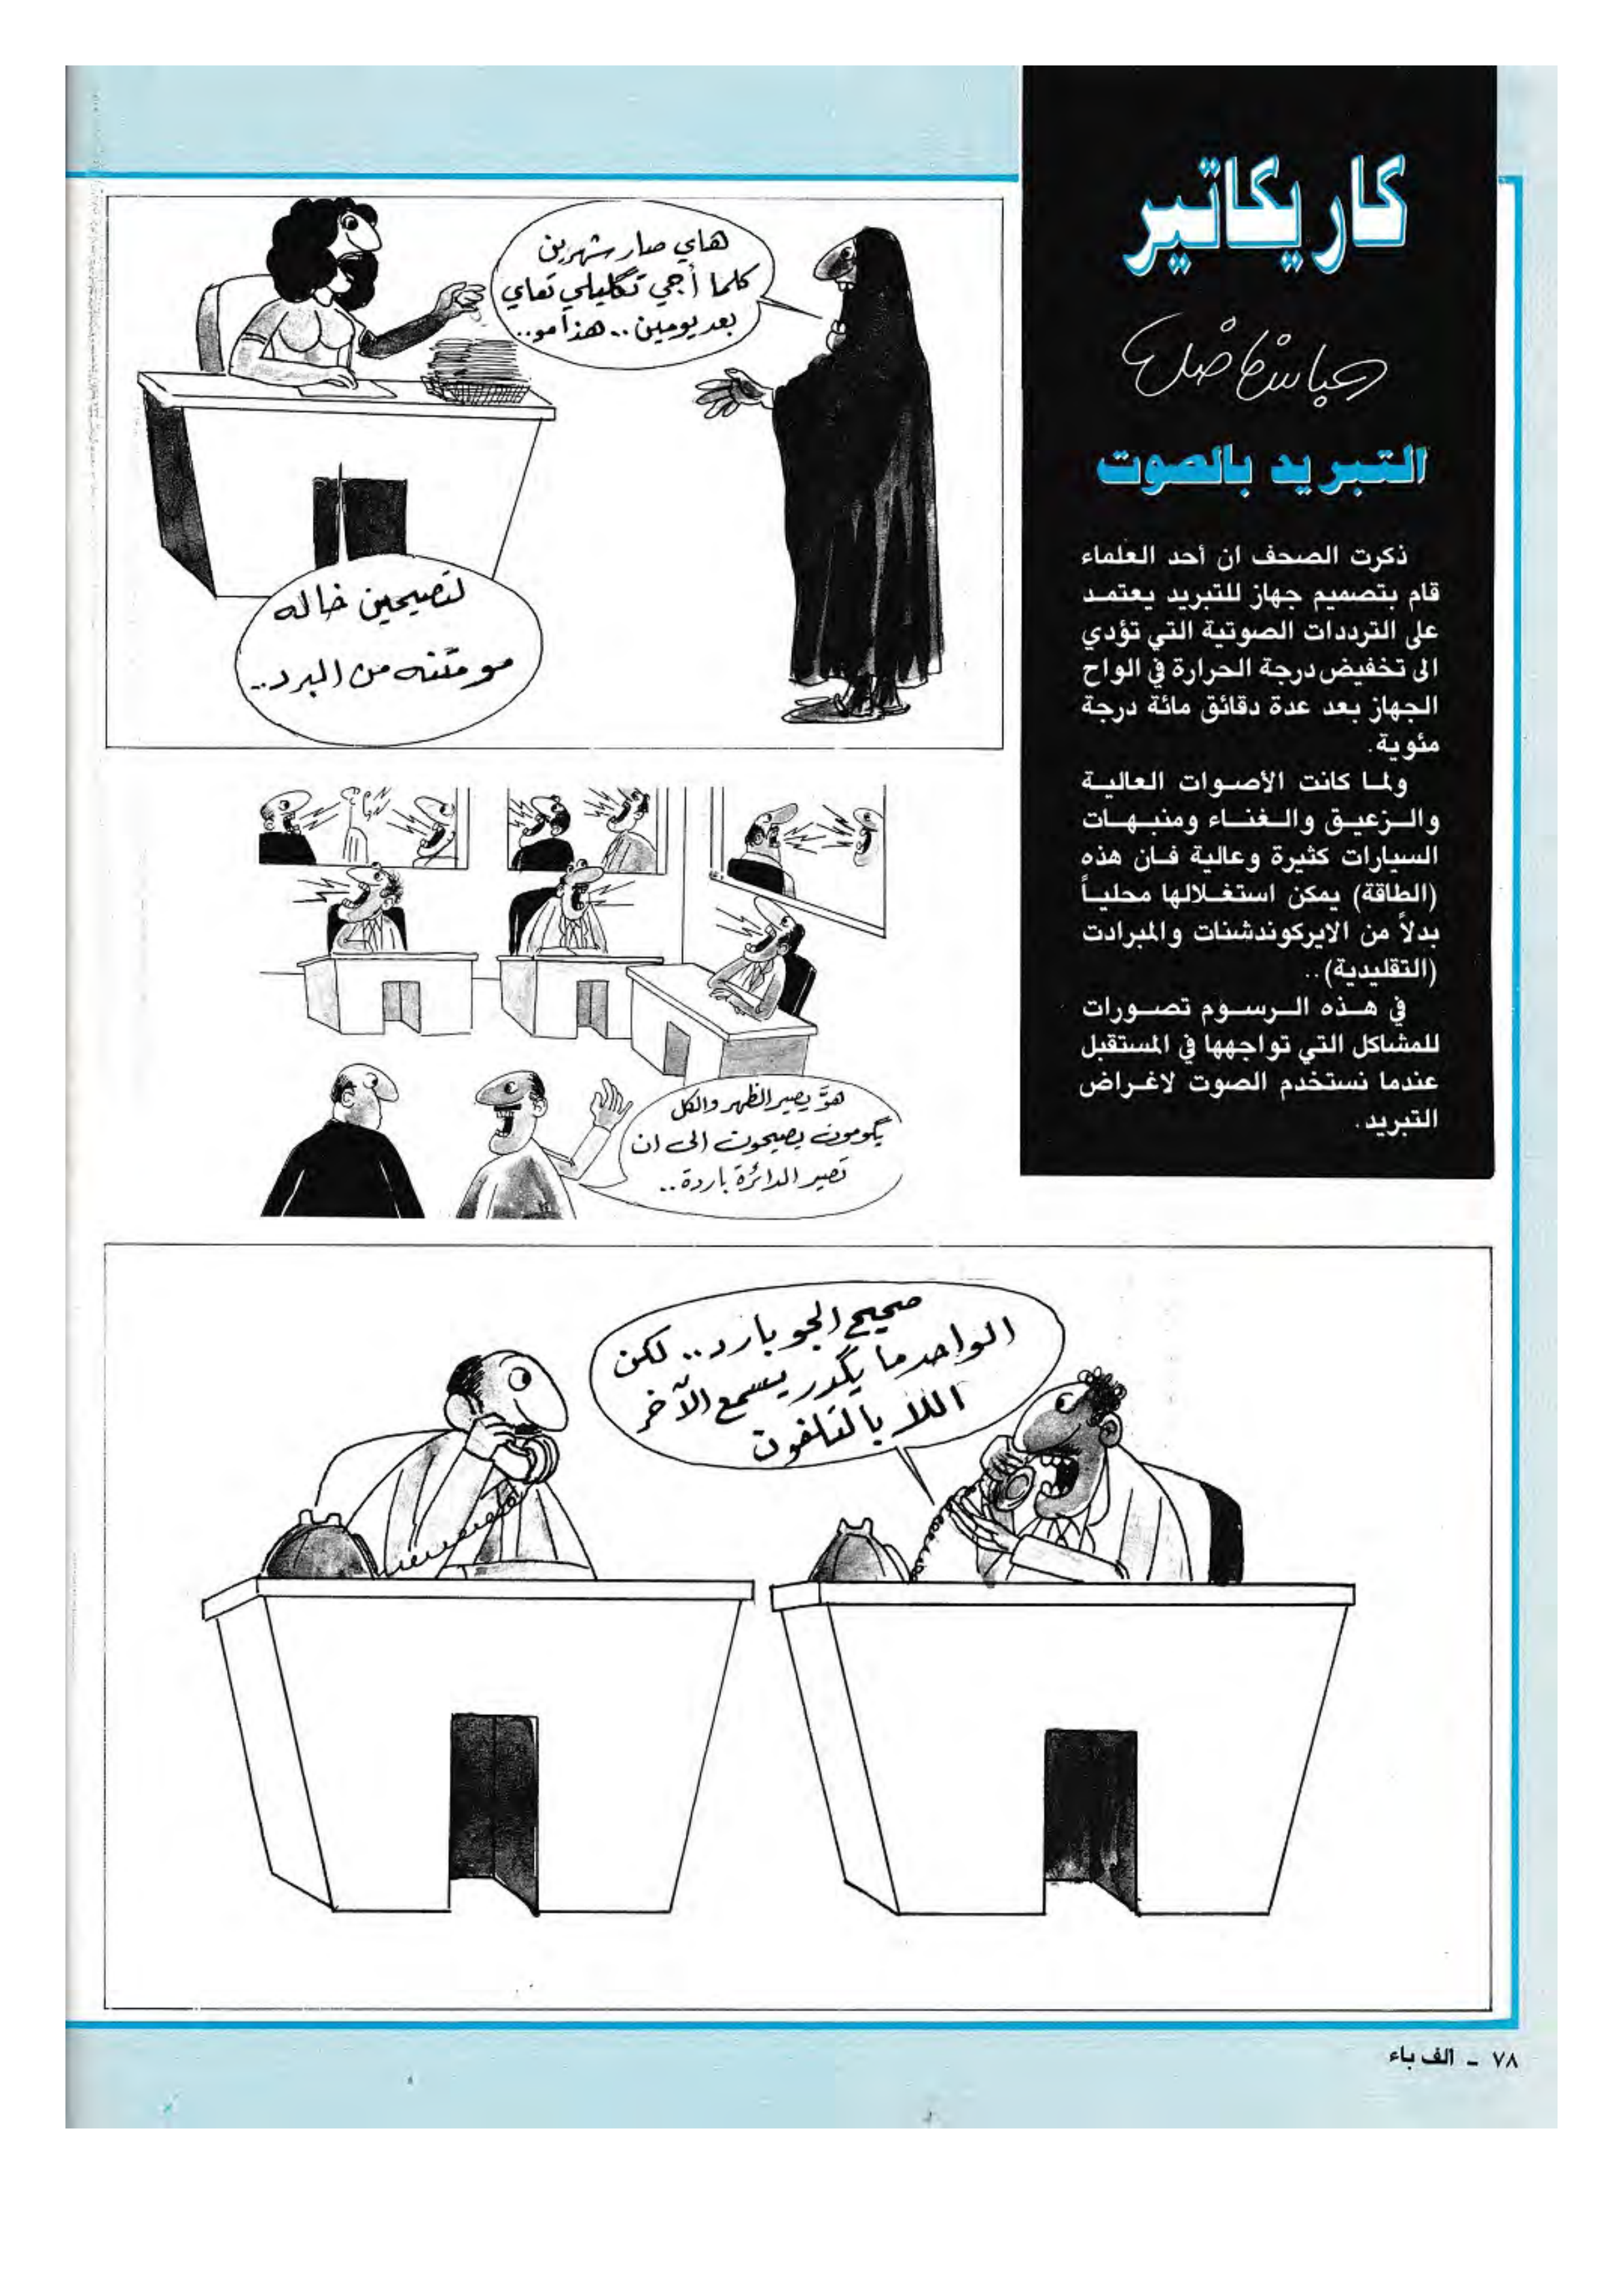 كاريكاتير
عباس فاضل
التبريد بالصوت
ذكرت الصحف ان أحد العلماء
قام بتصميم جهاز للتبريد يعتمد
على الترددات الصوتية التي تؤدي
الى تخفيض درجة الحرارة في الواح
الجهاز بعد عدة دقائق مائة درجة
مئوية.
ولما كانت الأصوات العالية
والزعيق والغناء ومنبهات
السيارات كثيرة وعالية فان هذه
(الطاقة) يمكن استغلالها محلياً
بدلاً من الايركوندشنات والمبرادت
(التقليدية)..
في هذه الرسوم تصورات
للمشاكل التي تواجهها في المستقبل
عندما نستخدم الصوت لاغراض
التبريد.
هاي صار شهرين
كلما أجي تگليلي تعاي
بعد يومين.. هذا مو..
لتصيحين خاله
مو متنه من البرد..
هوَّ يصير الظهر والكل
يگومون يصيحون الى ان
تصير الدائرة باردة..
صحيح الجو بارد.. لكن
الواحد ما يگدر يسمع الآخر
اللا بالتلفون
٧٨ - الف باء